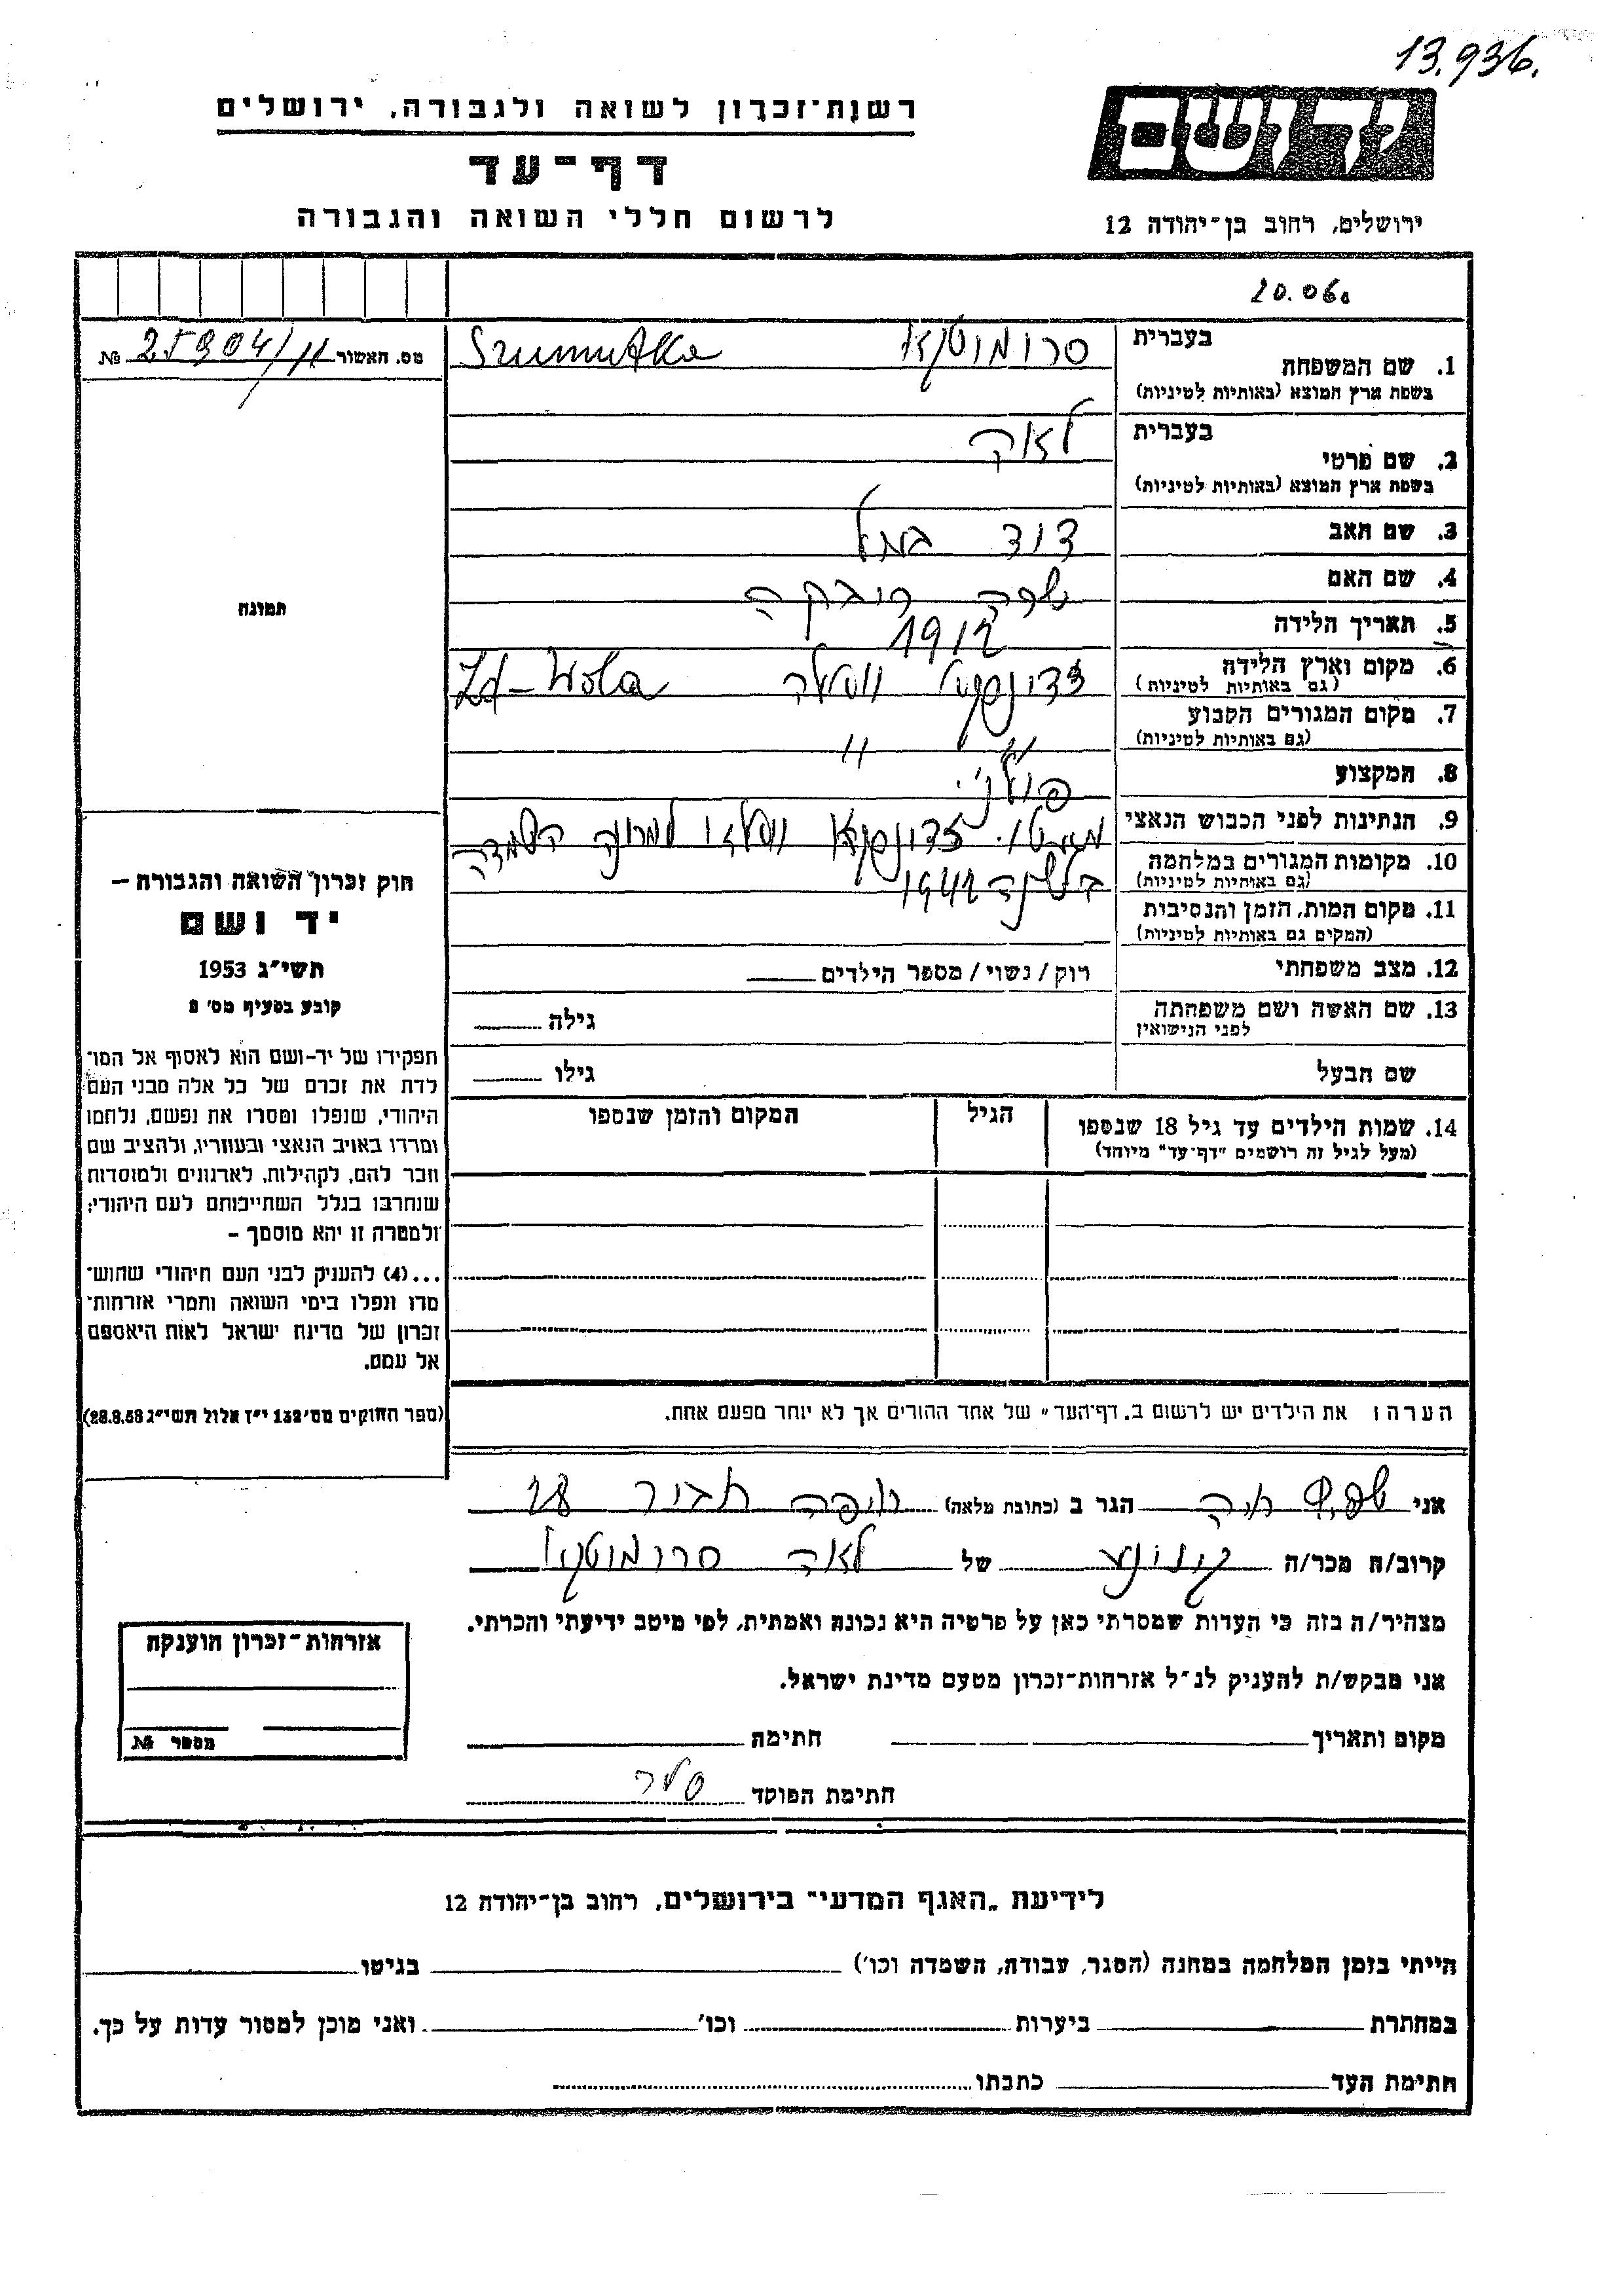 13.936.
רשות־זכרון לשואה ולגבורה, ירושלים
יד ושם
דף־עד
לרשום חללי השואה והגבורה
ירושלים, רחוב בן־יהודה 12
20.06.
בעברית
1. שם המשפחה סרומוטקא
בשפת ארץ המוצא (באותיות לטיניות)
מס. האשור № 25904/11
בעברית
2. שם פרטי לאה
בשפת ארץ המוצא (באותיות לטיניות)
3. שם האב דוד
4. שם האם שרה ריבקה
5. תאריך הלידה 1912
6. מקום וארץ הלידה Zd-Wola
(גם באותיות לטיניות)
7. מקום המגורים הקבוע " "
(גם באותיות לטיניות)
8. המקצוע
9. הנתינות לפני הכבוש הנאצי
10. מקומות המגורים במלחמה
(גם באותיות לטיניות)
11. מקום המות, הזמן והנסיבות
(המקום גם באותיות לטיניות)
בשנת 1942
12. מצב משפחתי רוק / נשוי / מספר הילדים
13. שם האשה ושם משפחתה גילה
לפני הנישואין
שם הבעל גילו
14. שמות הילדים עד גיל 18 שנספו הגיל המקום והזמן שנספו
(מעל לגיל זה רושמים "דף־עד" מיוחד)
הערה: את הילדים יש לרשום ב„דף־העד" של אחד ההורים אך לא יותר מפעם אחת.
תמונה
חוק זכרון השואה והגבורה –
יד ושם
תשי״ג 1953
קובע בסעיף מס׳ 2
תפקידו של יד-ושם הוא לאסוף אל המו־
לדת את זכרם של כל אלה מבני העם
היהודי, שנפלו ומסרו את נפשם, נלחמו
ומרדו באויב הנאצי ובעוזריו, ולהציב שם
וזכר להם, לקהילות, לארגונים ולמוסדות
שנחרבו בגלל השתייכותם לעם היהודי;
ולמטרה זו יהא מוסמך –
...(4) להעניק לבני העם היהודי שהוש־
מדו ונפלו בימי השואה והמרי אזרחות־
זכרון של מדינת ישראל לאות היאספם
אל עמם.
(ספר החוקים מס׳ 132 י״ז אלול תשי״ג 28.8.53)
אני הגר ב (כתובת מלאה) חיפה תבור 28
קרוב/ה מכר/ה של לאה סרומוטקא
מצהיר/ה בזה כי העדות שמסרתי כאן על פרטיה היא נכונה ואמתית, לפי מיטב ידיעתי והכרתי.
אני מבקש/ת להעניק לנ״ל אזרחות־זכרון מטעם מדינת ישראל.
מקום ותאריך חתימה
חתימת הפוקד
אזרחות־זכרון הוענקה
מספר №
לידיעת „האגף המדעי" בירושלים, רחוב בן־יהודה 12
הייתי בזמן המלחמה במחנה (הסגר, עבודה, השמדה וכו׳) בגיטו
במחתרת ביערות וכו׳ ואני מוכן למסור עדות על כך.
חתימת העד כתבתו